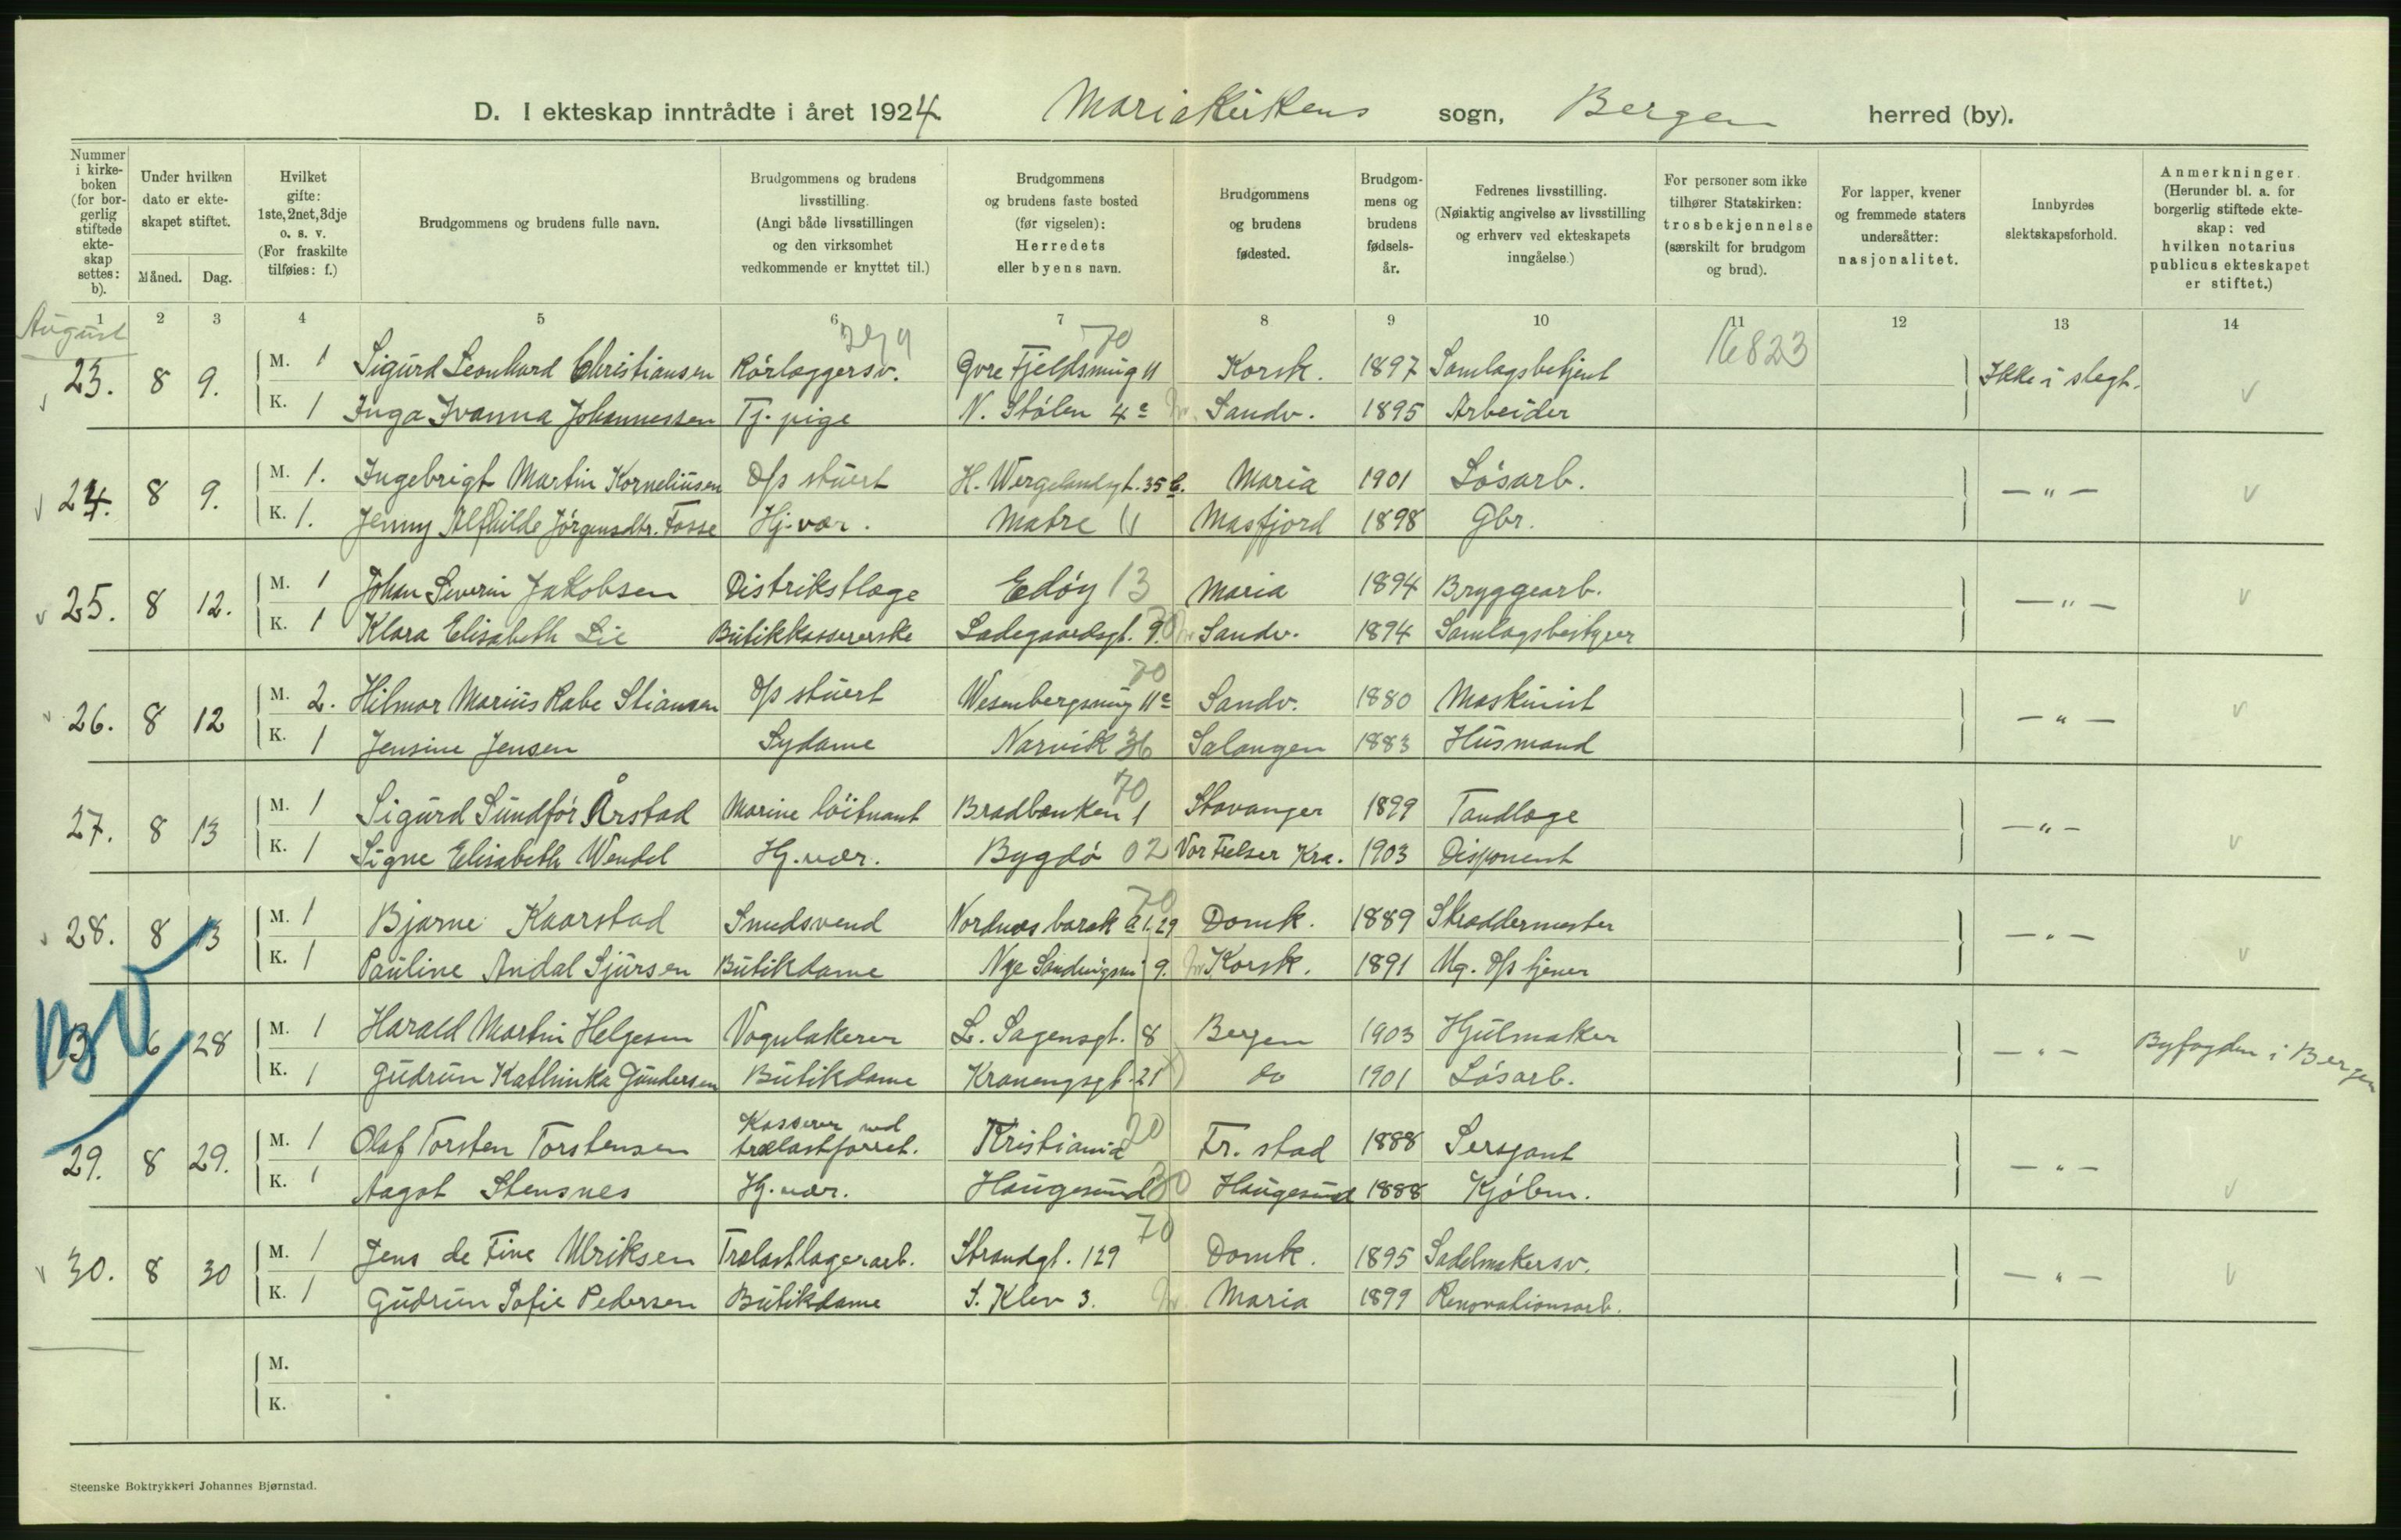 D. I ekteskap inntrådte i året 1924 Mariakirkens sogn, Bergen herred (by).
Nummer i kirkeboken (for borgerlig stiftede ekteskap settes: b).
Under hvilken dato er ekteskapet stiftet.
Måned. Dag.
Hvilket gifte: 1ste, 2net, 3dje o. s. v. (For fraskilte tilføies: f.)
Brudgommens og brudens fulle navn.
Brudgommens og brudens livsstilling. (Angi både livsstillingen og den virksomhet vedkommende er knyttet til.)
Brudgommens og brudens faste bosted (før vigselen): Herredets eller byens navn.
Brudgommens og brudens fødested.
Brudgommens og brudens fødselsår.
Fedrenes livsstilling. (Nøiaktig angivelse av livsstilling og erhverv ved ekteskapets inngåelse.)
For personer som ikke tilhører Statskirken: trosbekjennelse (særskilt for brudgom og brud).
For lapper, kvener og fremmede staters undersåtter: nasjonalitet.
Innbyrdes slektskapsforhold.
Anmerkninger. (Herunder bl. a. for borgerlig stiftede ekteskap: ved hvilken notarius publicus ekteskapet er stiftet.)
1 2 3 4 5 6 7 8 9 10 11 12 13 14
August 70 16823
23. 8 9. M. 1 Sigurd Leonhard Christiansen Rörlæggersv. Øvre Fjeldsmug 11 Korsk. 1897 Samlagsbetjent Ikke i slegt. v
K. 1 Inga Ivanna Johannessen Tj. pige N. Stölen 4c Sandv. 1895 Arbeider
v 24. 8 9. M. 1. Ingebrigt Martin Korneliusen D/s stuert H. Wergelandsgt. 35 b. Maria 1901 Lösarb. — " — v
K. 1. Jenny Alfhilde Jörgensdtr. Fosse Hj. vær. Matre 11 Masfjord 1898 Gbr.
v 25. 8 12. M. 1 Johan Severin Jakobsen Distriktslæge Edöy 13 Maria 1894 Bryggearb. — " — v
K. 1 Klara Elisabeth Lie Butikkassererske Ladegaardsgt. Sandv. 1894 Samlagsbestyrer
70
v 26. 8 12 M. 2. Hilmar Marius Rabe Stiansen D/s stuert Wesenbergsmug 11c Sandv. 1880 Maskinist — " — v
K. 1 Jensine Jensen Sydame Narvik 36 Salangen 1883 Husmand
70
27. 8 13 M. 1 Sigurd Sundför Årstad Marine löitnant Bradbænken 1 Stavanger 1899 Tandlæge — " —
K. 1 Signe Elisabeth Wendel Hj. vær. Bygdö 02 Vor Frelser Kra. 1903 Disponent v
70
28. 8 13 M. 1 Bjarne Kaarstad Smedsvend Nordnæs barak 29 Domk. 1889 Skræddermester — " —
K. 1 Pauline Andal Sjursen Butikdame Nye Sandvigsv. 9. Korsk. 1891 D/s tjener v
13 6 28 M. 1 Harald Martin Helgesen Vognlakerer L. Sagensgt. 8 Bergen 1903 Hjulmaker — " — Byfogden i Bergen
K. 1 Gudrun Kathinka Gundersen Butikdame Kroneng­sgt. 21 do 1901 Lösarb.
29. 8 29. M. 1 Olaf Torsten Torstensen Kasserer ved trælastforret. Kristiania 20 Fr. stad 1888 Sersjant — " —
K. 1 Aagot Stensnes Hj. vær. Haugesund Haugesund 1888 Kjöbm. v
70
v 30. 8 30 M. 1 Jens de Fine Ulriksen Trælastlagerarb. Strandgt. 129 Domk. 1895 Sadelmakersv. — " — v
K. 1 Gudrun Sofie Pedersen Butikdame S. Klev 3. Maria 1899 Renovationsarb.
M.
K.
Steenske Boktrykkeri Johannes Bjørnstad.